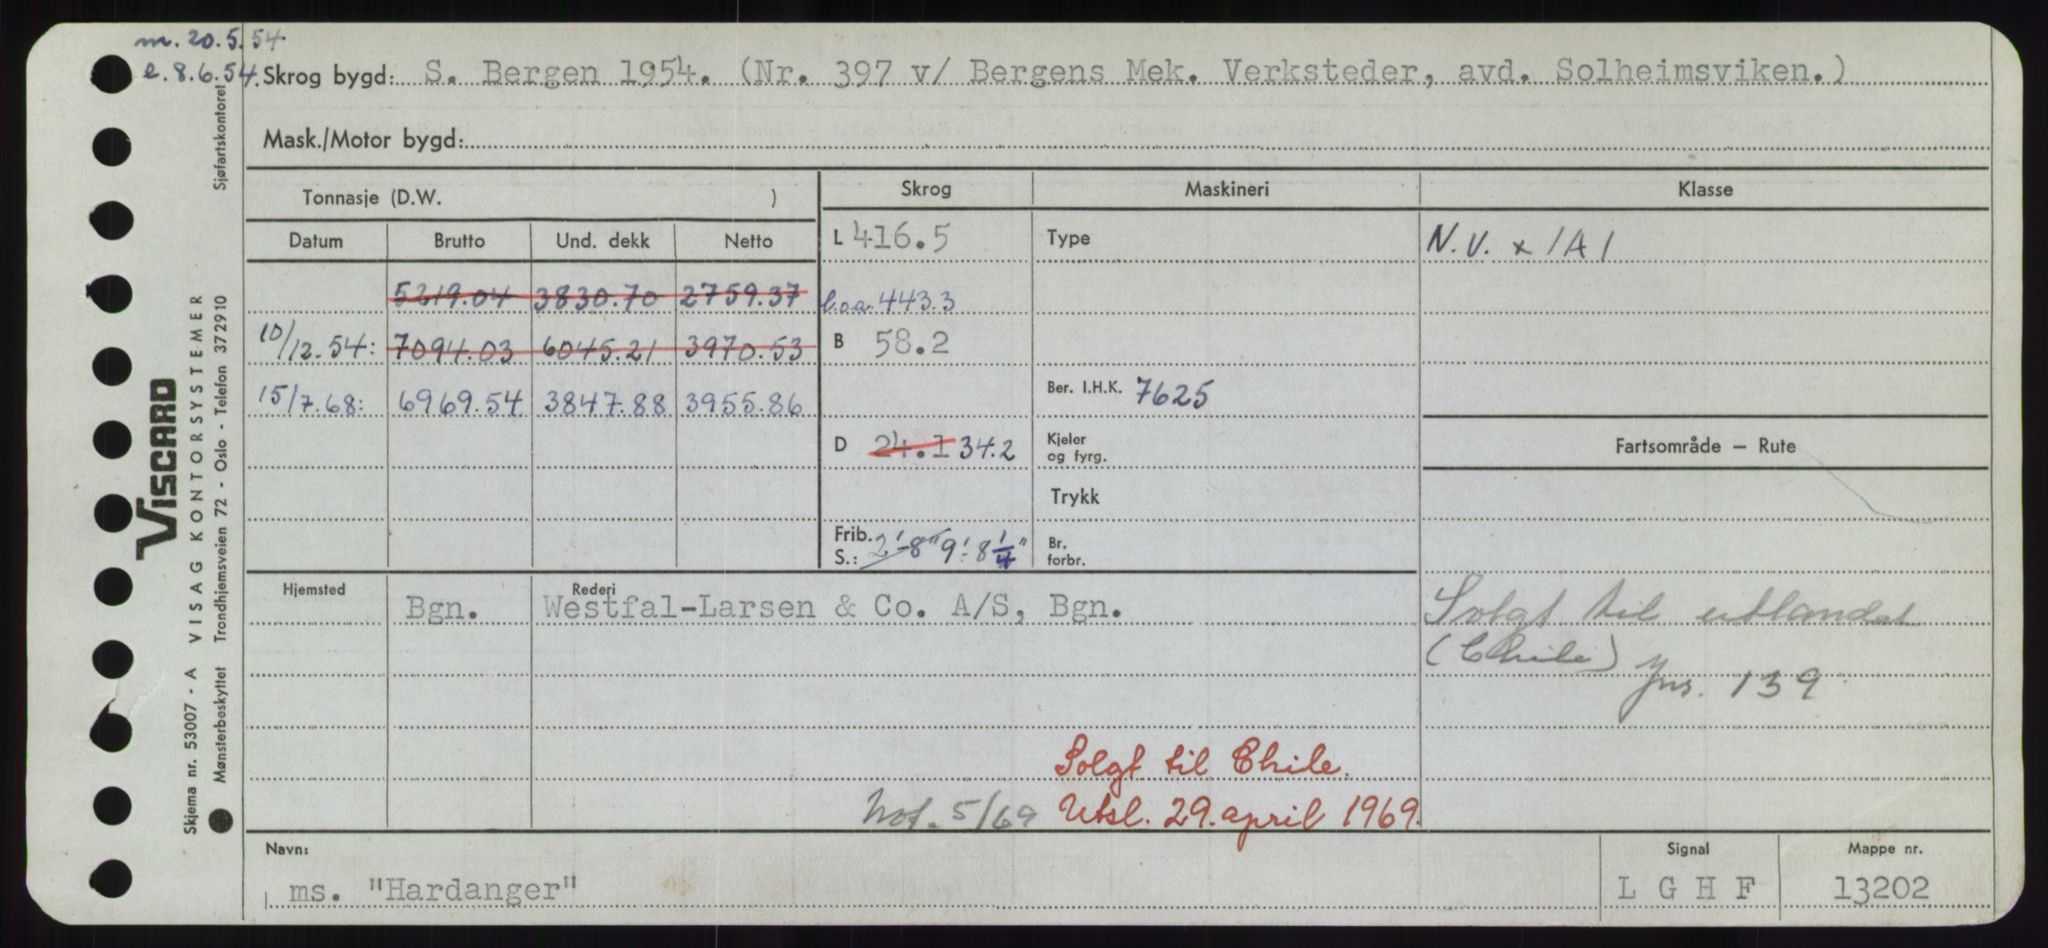 m. 20.5.54
e. 8.6.54. Skrog bygd: S. Bergen 1954. (Nr. 397 v/ Bergens Mek. Verksteder, avd. Solheimsviken.)
Mask./Motor bygd:
Tonnasje (D.W. ) Skrog Maskineri Klasse
Datum Brutto Und. dekk Netto L 416.5 Type N.V. x 1A1
5219.04 3830.70 2759.37 l.o.a. 443.3
10/12.54: 7094.03 6045.21 3970.53 B 58.2
15/7.68: 6969.54 3847.88 3955.86 Ber. I.H.K. 7625
D 24.1 34.2 Kjeler og fyrg. Fartsområde — Rute
Trykk
Frib. S.: 2'-8" 9'-8 1/4" Br. forbr.
Hjemsted Rederi
Bgn. Westfal-Larsen & Co. A/S, Bgn. Solgt til utlandet
(Chile) Jnr. 139
Solgt til Chile.
Not. 5/69 Utsl. 29. april 1969.
Navn: Signal Mappe nr.
ms. "Hardanger" L G H F 13202
Sjøfartskontoret
VISCARD
VISAG KONTORSYSTEMER
Trondhjemsveien 72 - Oslo - Telefon 372910
Skjema nr. 53007 - A
Mønsterbeskyttet